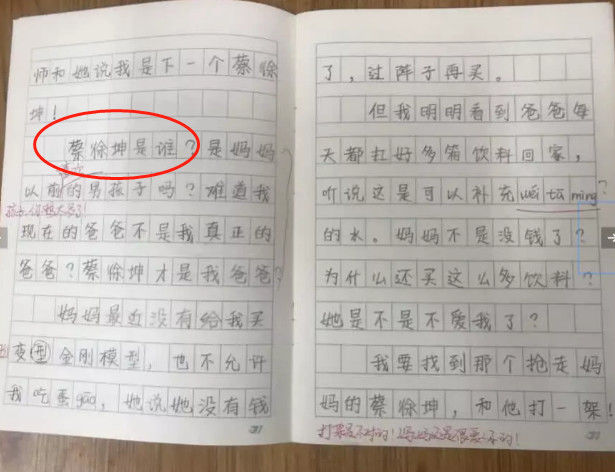 师和她说我是下一个蔡徐
坤！
蔡徐坤是谁？是妈妈
以前的男孩子吗？难道我
现在的爸爸不是我真正的
爸爸？蔡徐坤才是我爸爸？
妈妈最近没有给我买
变型金刚模型，也不允许
我吃蛋gāo，她说她没有钱
了，过阵子再买。
但我明明看到爸爸每
天都扛好多箱饮料回家，
听说这是可以补充wéi tā mìng
的水。妈妈不是没钱了？
为什么还买这么多饮料？
她是不是不爱我了？
我要找到那个抢走妈
妈的蔡徐坤，和他打一架！
打架是不对的！妈妈还是很爱你的！